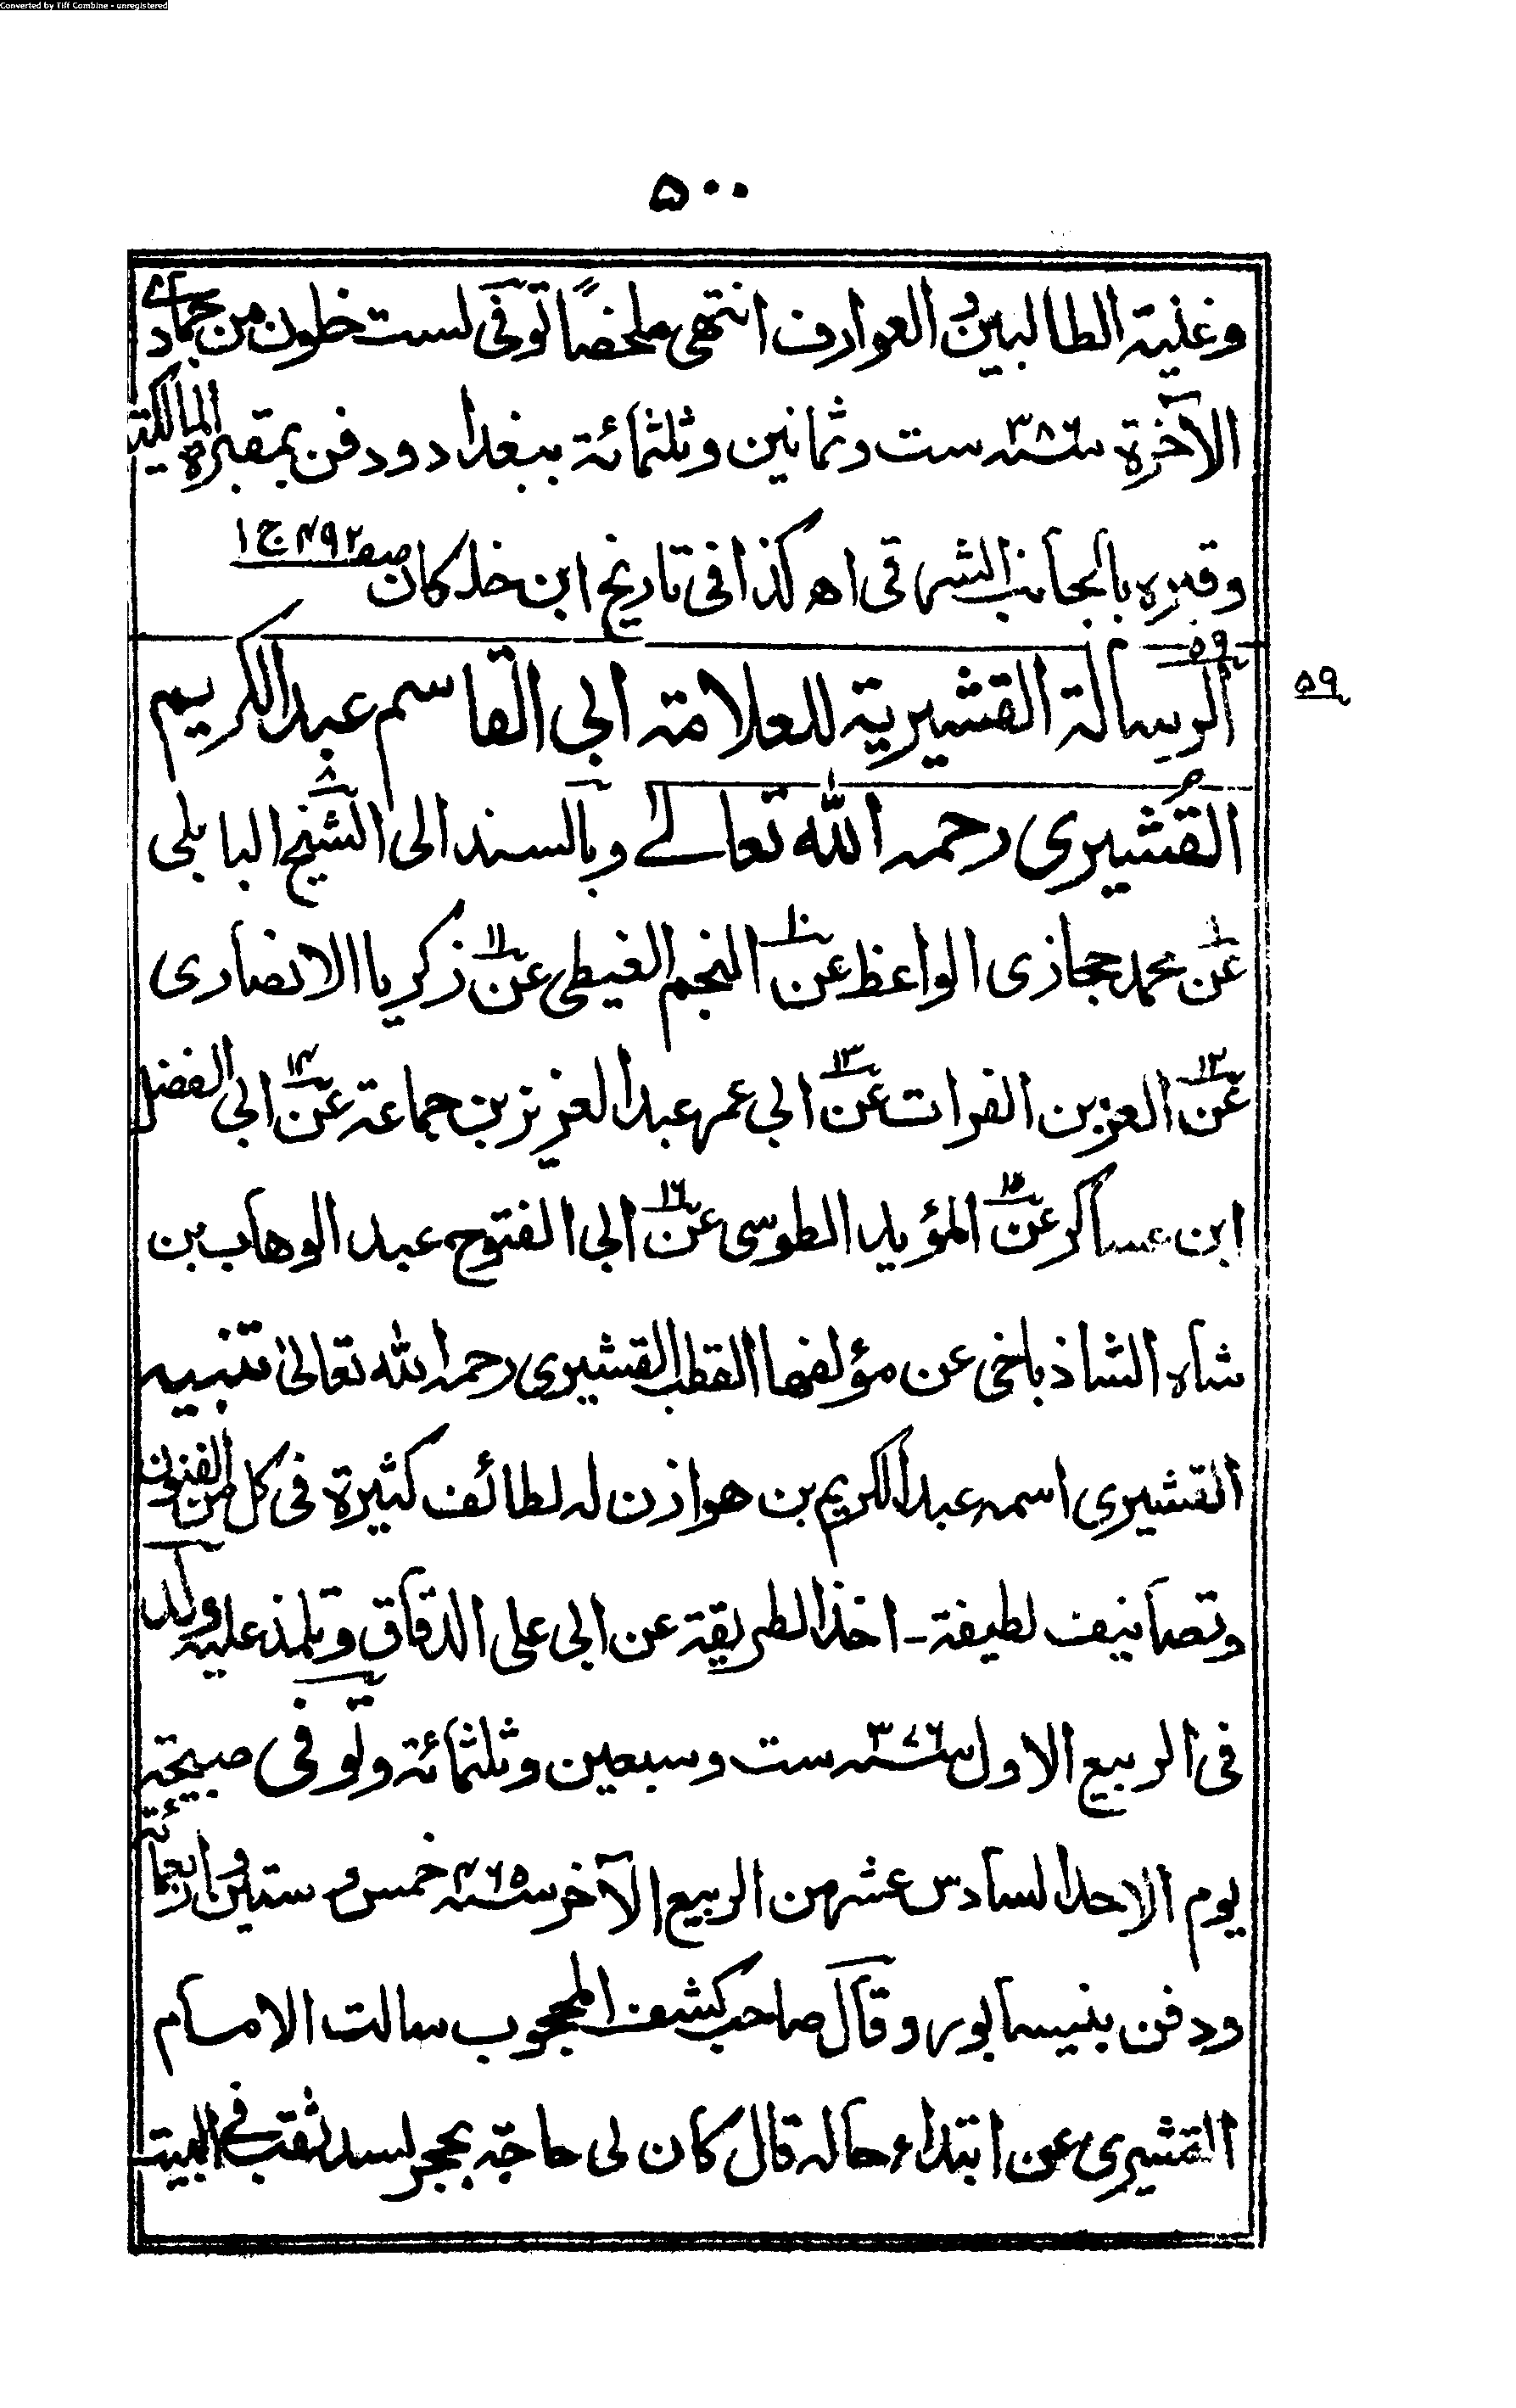 Converted by Tiff Combine - unregistered
٥٠٠
وغنية الطالبين و العوارف انتهى ملخصاً توفى لست خلون من جمادے
الآخرة سنه ٣٨٦ ست وثمانين وثلثمائة ببغداد ودفن بمقبرة المالكية
وقبره بالجانب الشرقى اھ كذا فى تاريخ ابن خلكان صہ ٤٩٢ ج ١
٥٩
الرسالة القشيرية للعلامة ابى القاسم عبد الكريم
٥٩
القُشيرى رحمه الله تعالے وبالسند الى الشيخ ٨ البابلى
عن محمد حجازى الواعظ عن ١٠ النجم الغيطى عن ١١ زكريا الانصارى
عن ١٢ العز بن الفرات عن ١٣ ابى عمر عبد العزيز بن جماعة عن ١٤ ابى الفضل
ابن عساكر عن ١٥ المؤيد الطوسى عن ١٦ ابى الفتوح عبد الوهاب بن
شاه الشاذباخى عن مؤلفها القطب القشيرى رحمه الله تعالىٰ تنبيه
القشيرى اسمه عبد الكريم بن هوازن له لطائف كثيرة فى كل من الفنون
وتصانيف لطيفة ـ اخذ الطريقة عن ابى على الدقاق وتلمذ عليه ولد
فى الربيع الاول سنه ٣٧٦ ست وسبعين وثلثمائة وتوفى صبيحة
يوم الاحد السادس عشر من الربيع الآخر سنه ٤٦٥ خمس و ستين و اربعمائة
ودفن بنيسابور وقال صاحب كشف المحجوب سالت الامام
القشيرى عن ابتداء حاله قال كان لى حاجة بحجر لسد ثقب فى البيت